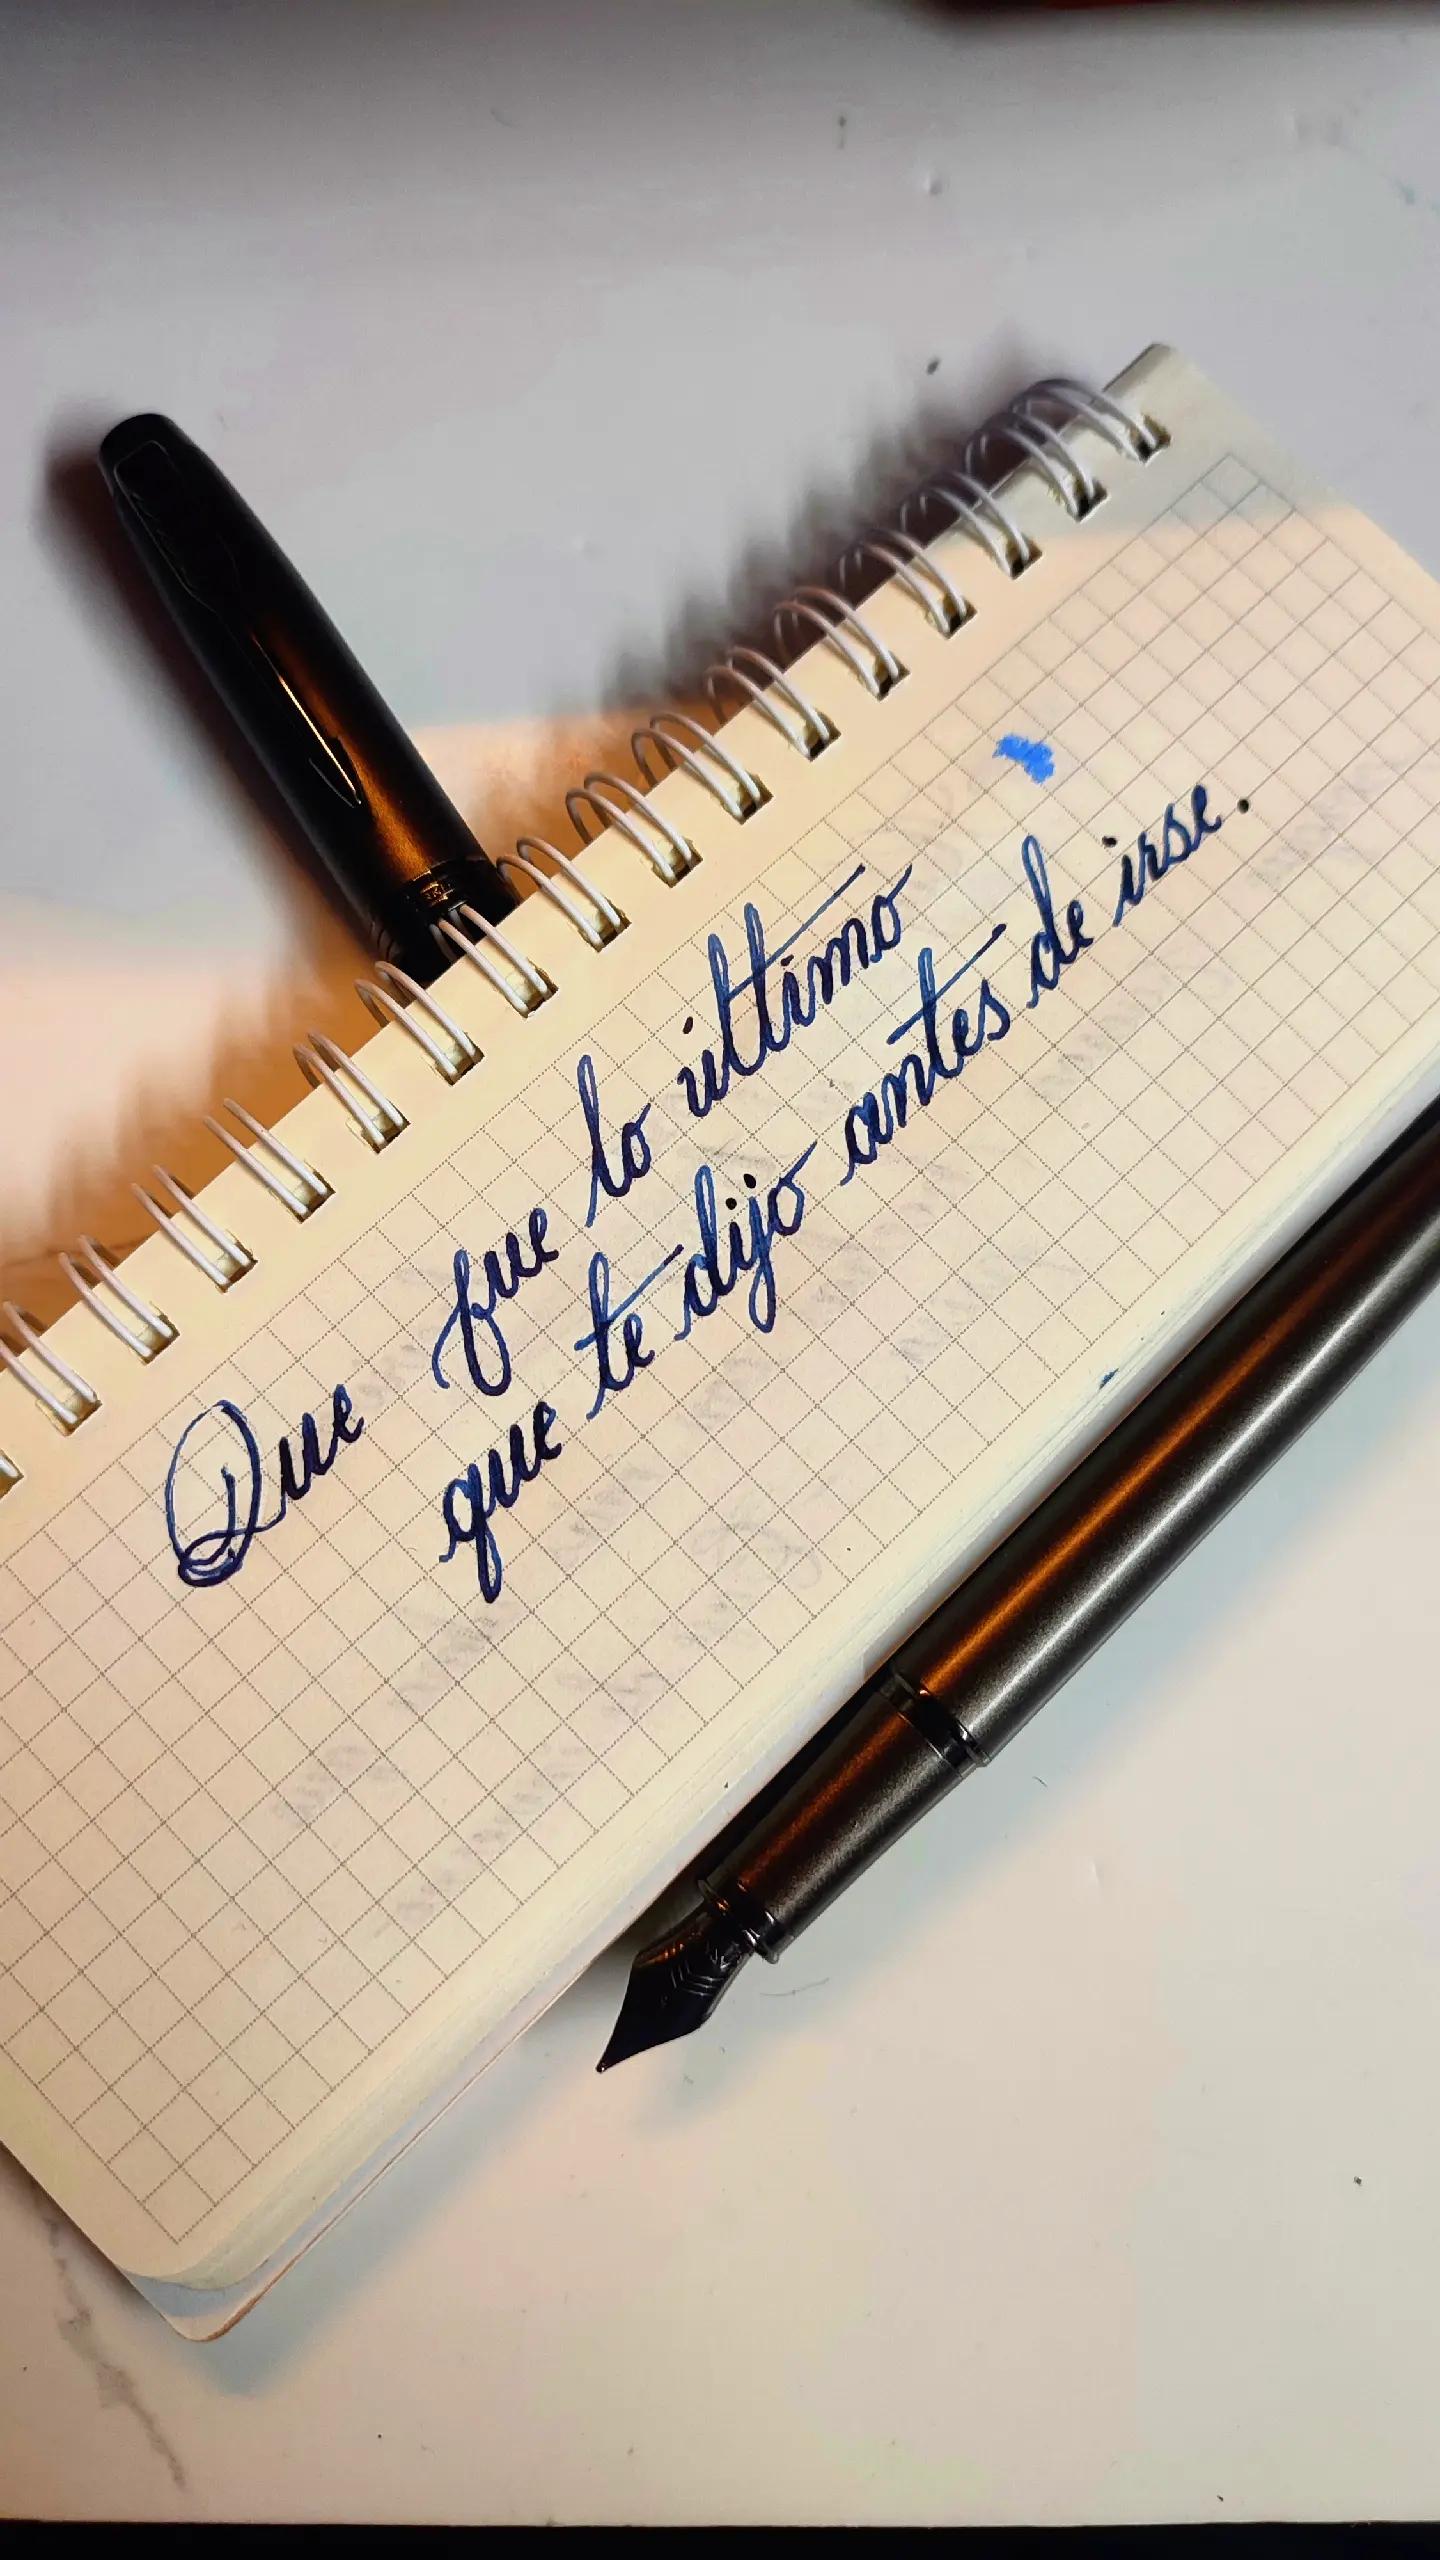 Que fue lo último
que te dijo antes de irse.